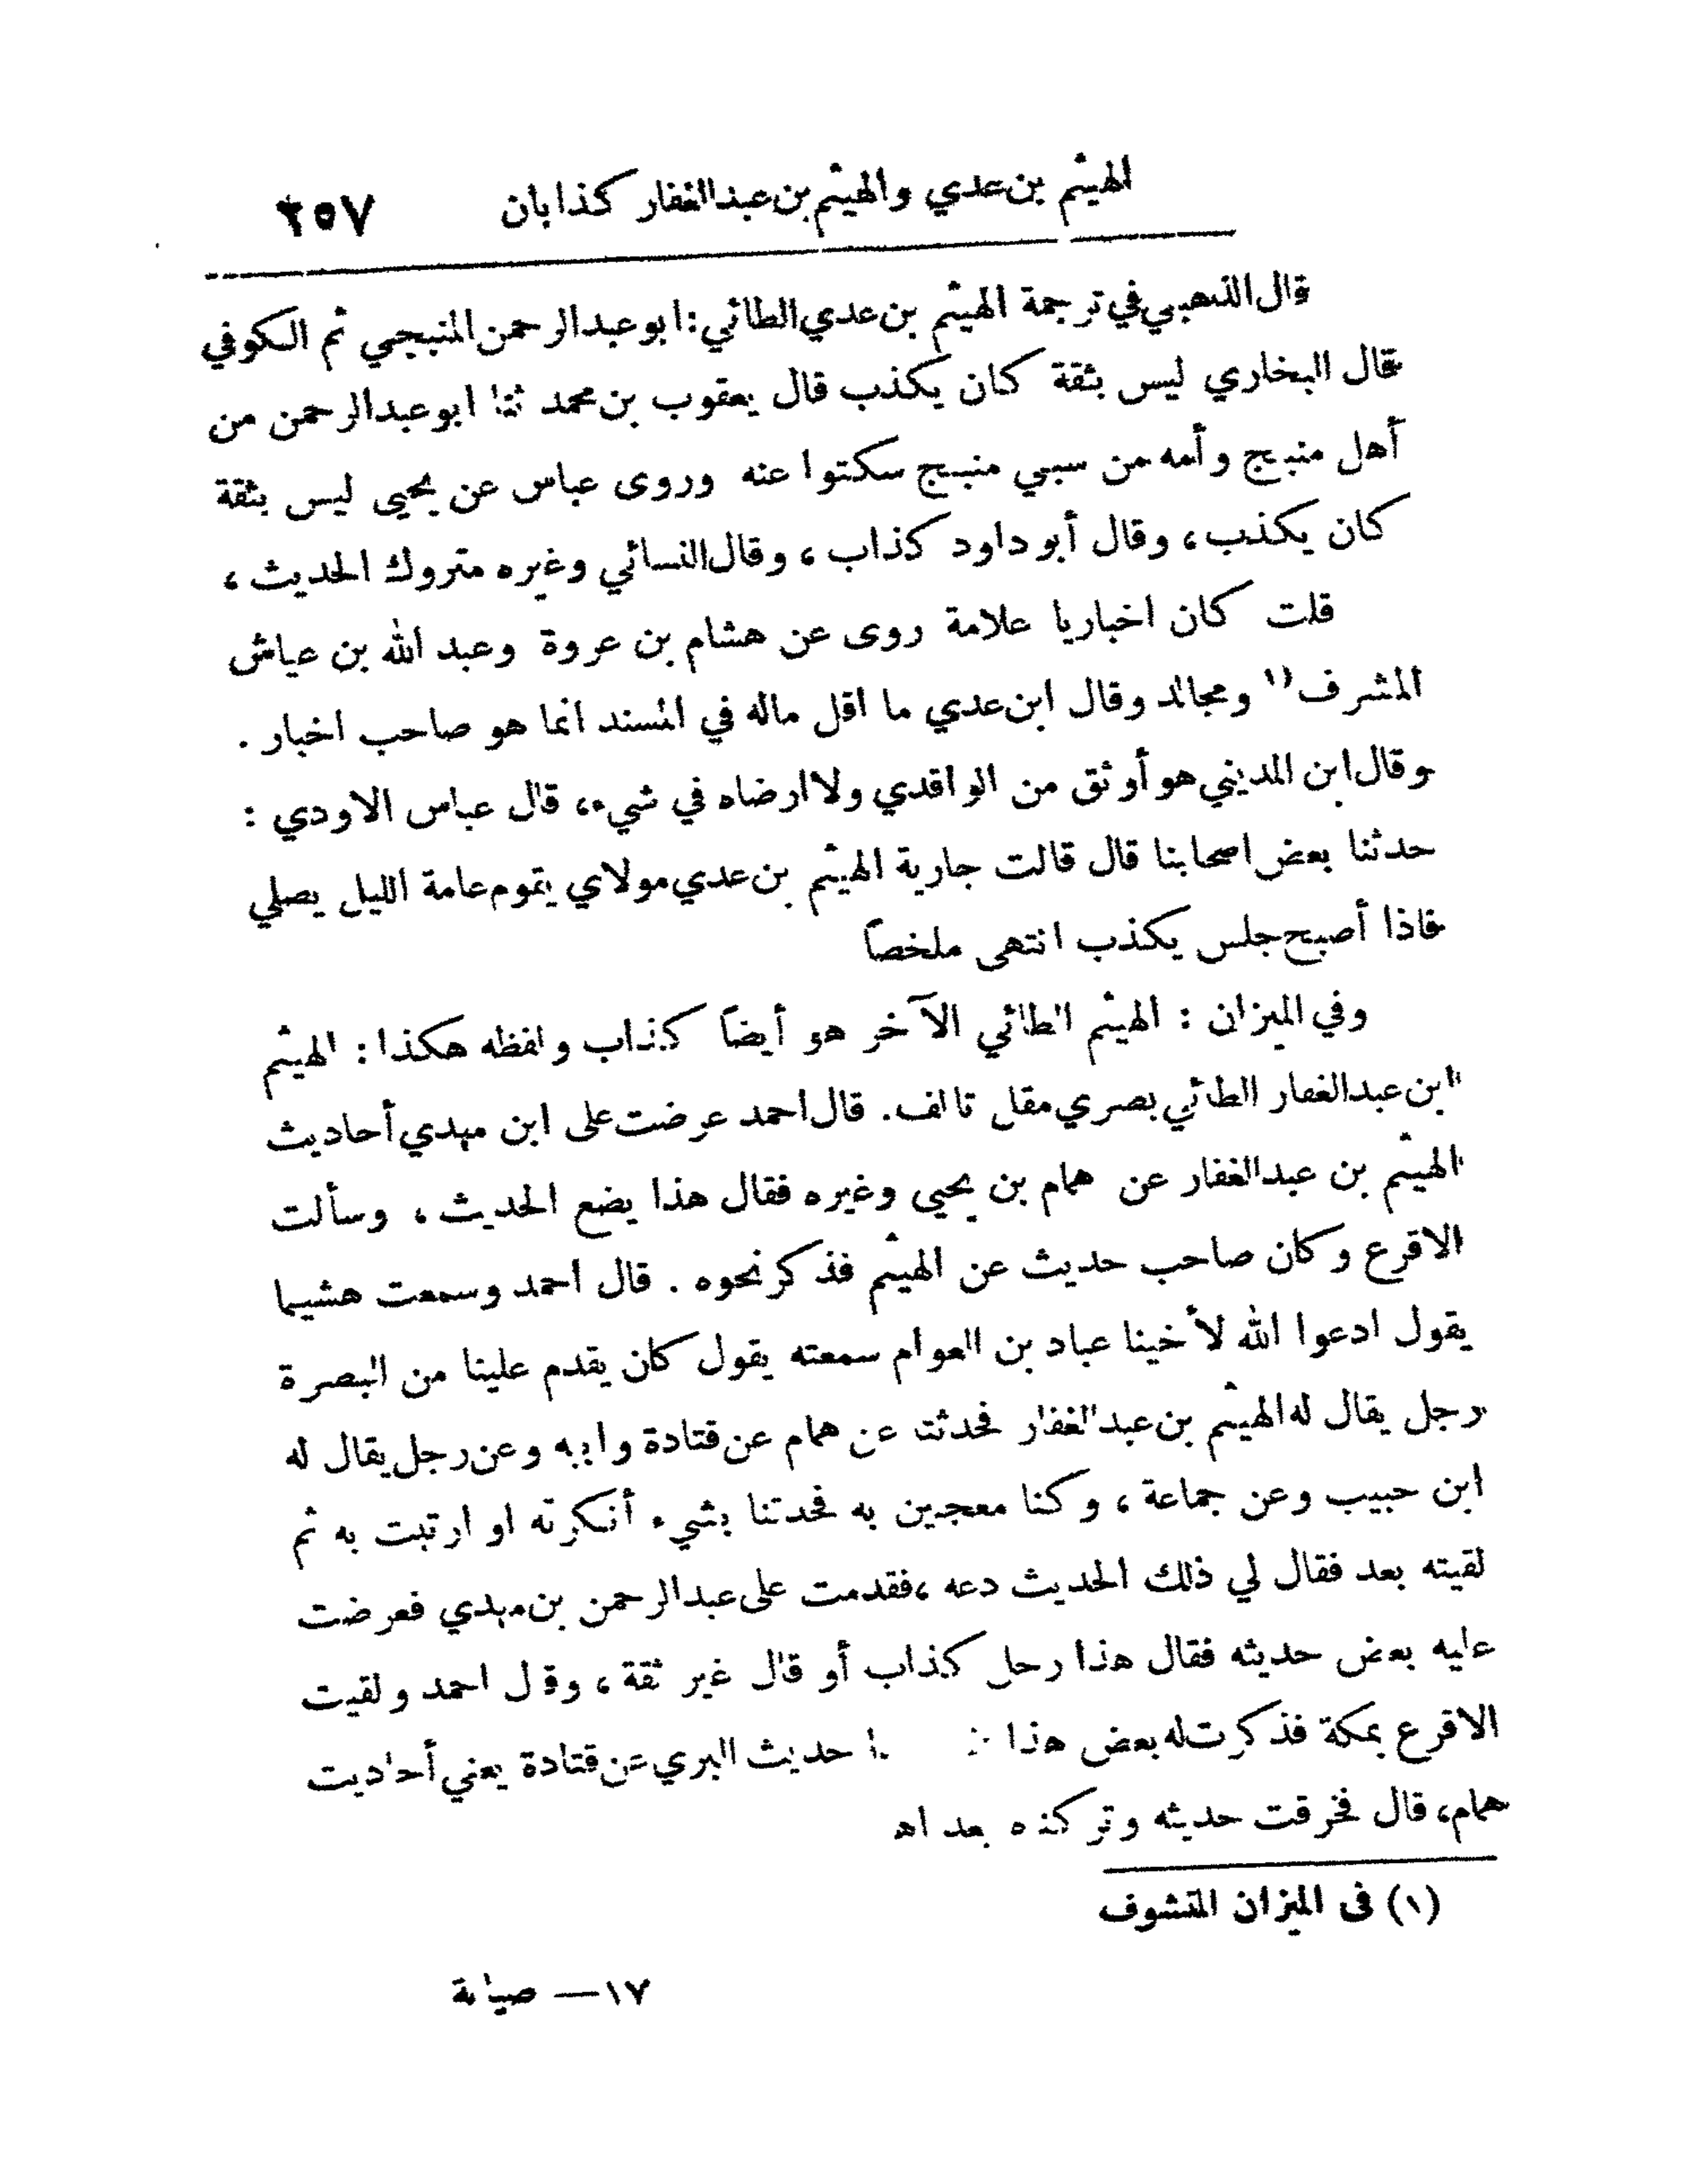 الهيثم بن عدي والهيثم بن عبد الغفار كذابان ٢٥٧
قال الذهبي في ترجمة الهيثم بن عدي الطائي: ابو عبد الرحمن المنبجي ثم الكوفي
قال البخاري ليس بثقة كان يكذب قال يعقوب بن محمد ثنا ابو عبد الرحمن من
أهل منبج وأمه من سبي منبج سكتوا عنه وروى عباس عن يحيى ليس بثقة
كان يكذب، وقال أبو داود كذاب، وقال النسائي وغيره متروك الحديث،
قلت كان اخباريا علامة روى عن هشام بن عروة وعبد الله بن عياش
المشرف (١) ومجالد وقال ابن عدي ما اقل ماله في المسند انما هو صاحب اخبار .
وقال ابن المديني هو أوثق من الواقدي ولا ارضاه في شيء، قال عباس الاودي :
حدثنا بعض اصحابنا قال قالت جارية الهيثم بن عدي مولاي يقوم عامة الليل يصلي
فاذا أصبح جلس يكذب انتهى ملخصاً
وفي الميزان : الهيثم الطائي الآخر هو أيضاً كذاب ولفظه هكذا : الهيثم
ابن عبد الغفار الطائي بصري مقل تالف. قال احمد عرضت على ابن مهدي أحاديث
الهيثم بن عبد الغفار عن همام بن يحيى وغيره فقال هذا يضع الحديث، وسألت
الاقرع وكان صاحب حديث عن الهيثم فذكر نحوه . قال احمد وسمعت هشيما
يقول ادعوا الله لأخينا عباد بن العوام سمعته يقول كان يقدم علينا من البصرة
رجل يقال له الهيثم بن عبد الغفار فحدثنا عن همام عن قتادة وابيه وعن رجل يقال له
ابن حبيب وعن جماعة، وكنا معجبين به فحدثنا بشيء أنكرته او ارتبت به ثم
لقيته بعد فقال لي ذلك الحديث دعه، فقدمت على عبد الرحمن بن مهدي فعرضت
عليه بعض حديثه فقال هذا رجل كذاب أو قال غير ثقة، وقال احمد ولقيت
الاقرع بمكة فذكرت له بعض هذا حديث البري عن قتادة يعني أحاديث
همام، قال فخرقت حديثه وتركناه بعد اه
(١) في الميزان المتشوف
١٧— صيانة